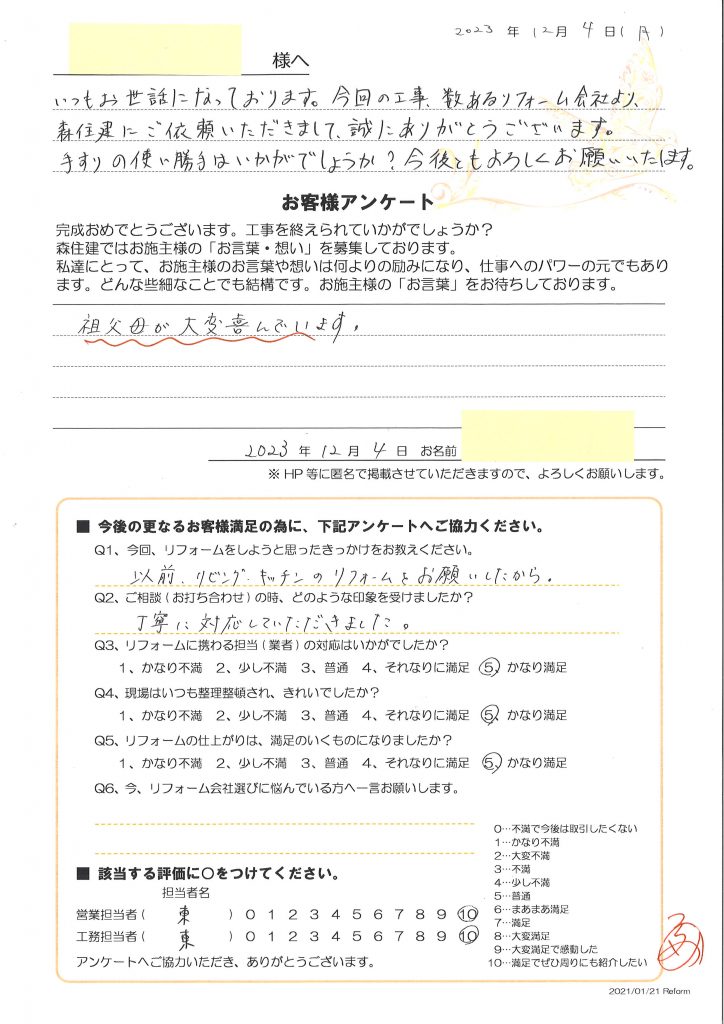 2023 年 12月 4 日(月)
様へ
いつもお世話になっております。今回の工事、数あるリフォーム会社より、
森住建にご依頼いただきまして、誠にありがとうございます。
手すりの使い勝手はいかがでしょうか?今後ともよろしくお願いいたします。
お客様アンケート
完成おめでとうございます。工事を終えられていかがでしょうか?
森住建ではお施主様の「お言葉・想い」を募集しております。
私達にとって、お施主様のお言葉や想いは何よりの励みになり、仕事へのパワーの元でもあり
ます。どんな些細なことでも結構です。お施主様の「お言葉」をお待ちしております。
祖父母が大変喜んでいます。
2023 年 12 月 4 日 お名前
※HP等に匿名で掲載させていただきますので、よろしくお願いします。
■ 今後の更なるお客様満足の為に、下記アンケートへご協力ください。
Q1、今回、リフォームをしようと思ったきっかけをお教えください。
以前、リビング・キッチンのリフォームをお願いしたから。
Q2、ご相談(お打ち合わせ)の時、どのような印象を受けましたか?
丁寧に対応していただきました。
Q3、リフォームに携わる担当(業者)の対応はいかがでしたか?
1、かなり不満 2、少し不満 3、普通 4、それなりに満足 5、かなり満足
Q4、現場はいつも整理整頓され、きれいでしたか?
1、かなり不満 2、少し不満 3、普通 4、それなりに満足 5、かなり満足
Q5、リフォームの仕上がりは、満足のいくものになりましたか?
1、かなり不満 2、少し不満 3、普通 4、それなりに満足 5、かなり満足
Q6、今、リフォーム会社選びに悩んでいる方へ一言お願いします。
■ 該当する評価に○をつけてください。
担当者名
営業担当者( 東 ) 0 1 2 3 4 5 6 7 8 9 10
工務担当者( 東 ) 0 1 2 3 4 5 6 7 8 9 10
アンケートへご協力いただき、ありがとうございます。
0…不満で今後は取引したくない
1…かなり不満
2…大変不満
3…不満
4…少し不満
5…普通
6…まあまあ満足
7…満足
8…大変満足
9…大変満足で感動した
10…満足でぜひ周りにも紹介したい
2021/01/21 Reform